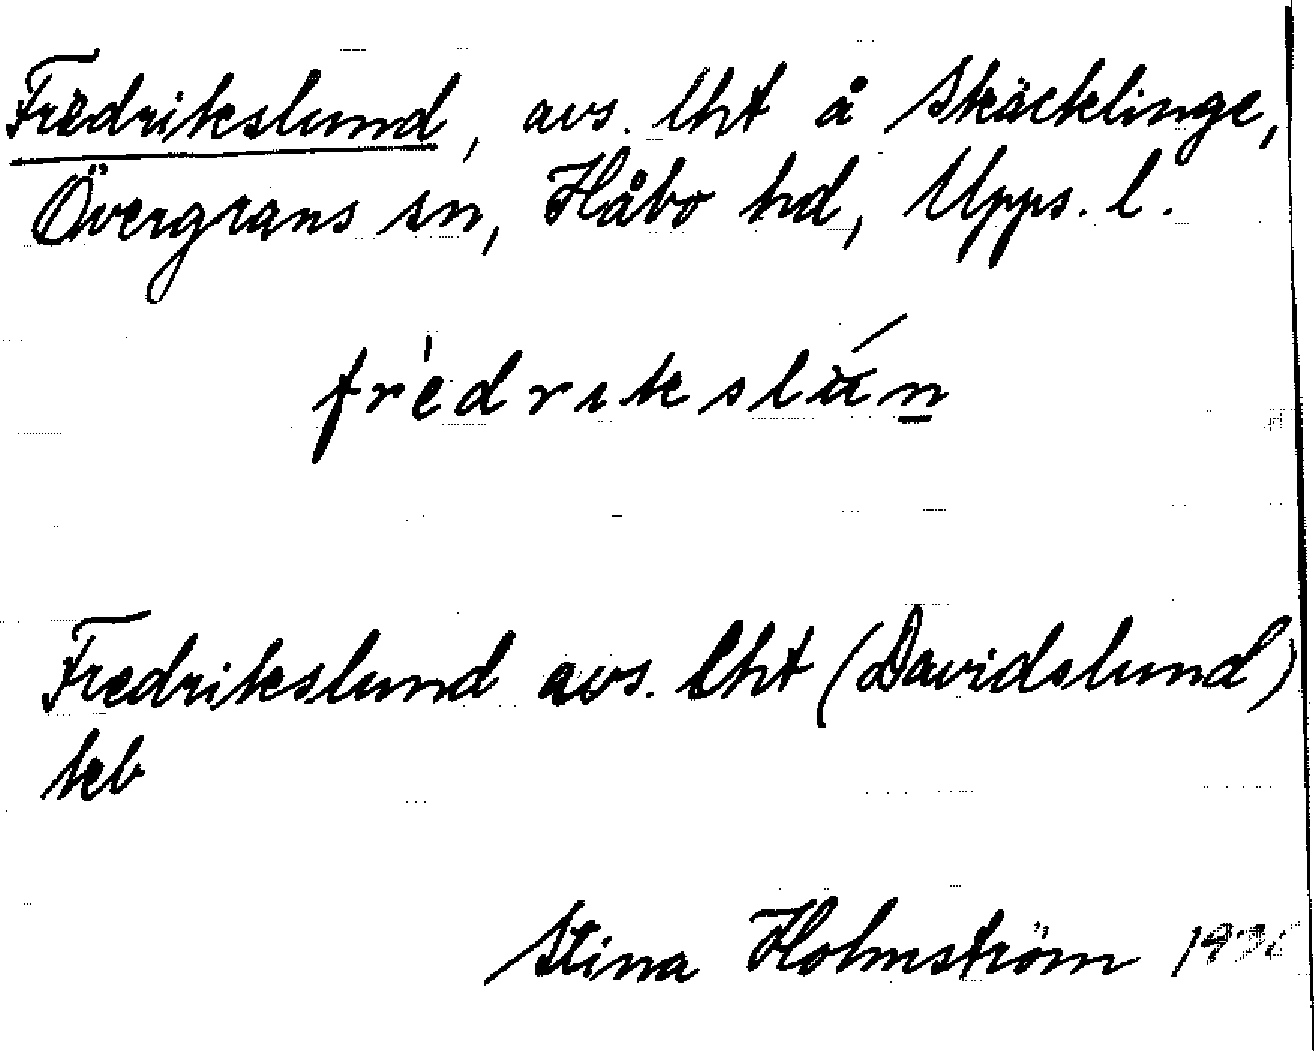 Fredrikslund, avs. lht å Skäcklinge,
Övergrans sn, Håbo hd, Upps. l.
frèdrikslún
Fredrikslund avs. lht (Davidslund)
kb
Stina Holmström